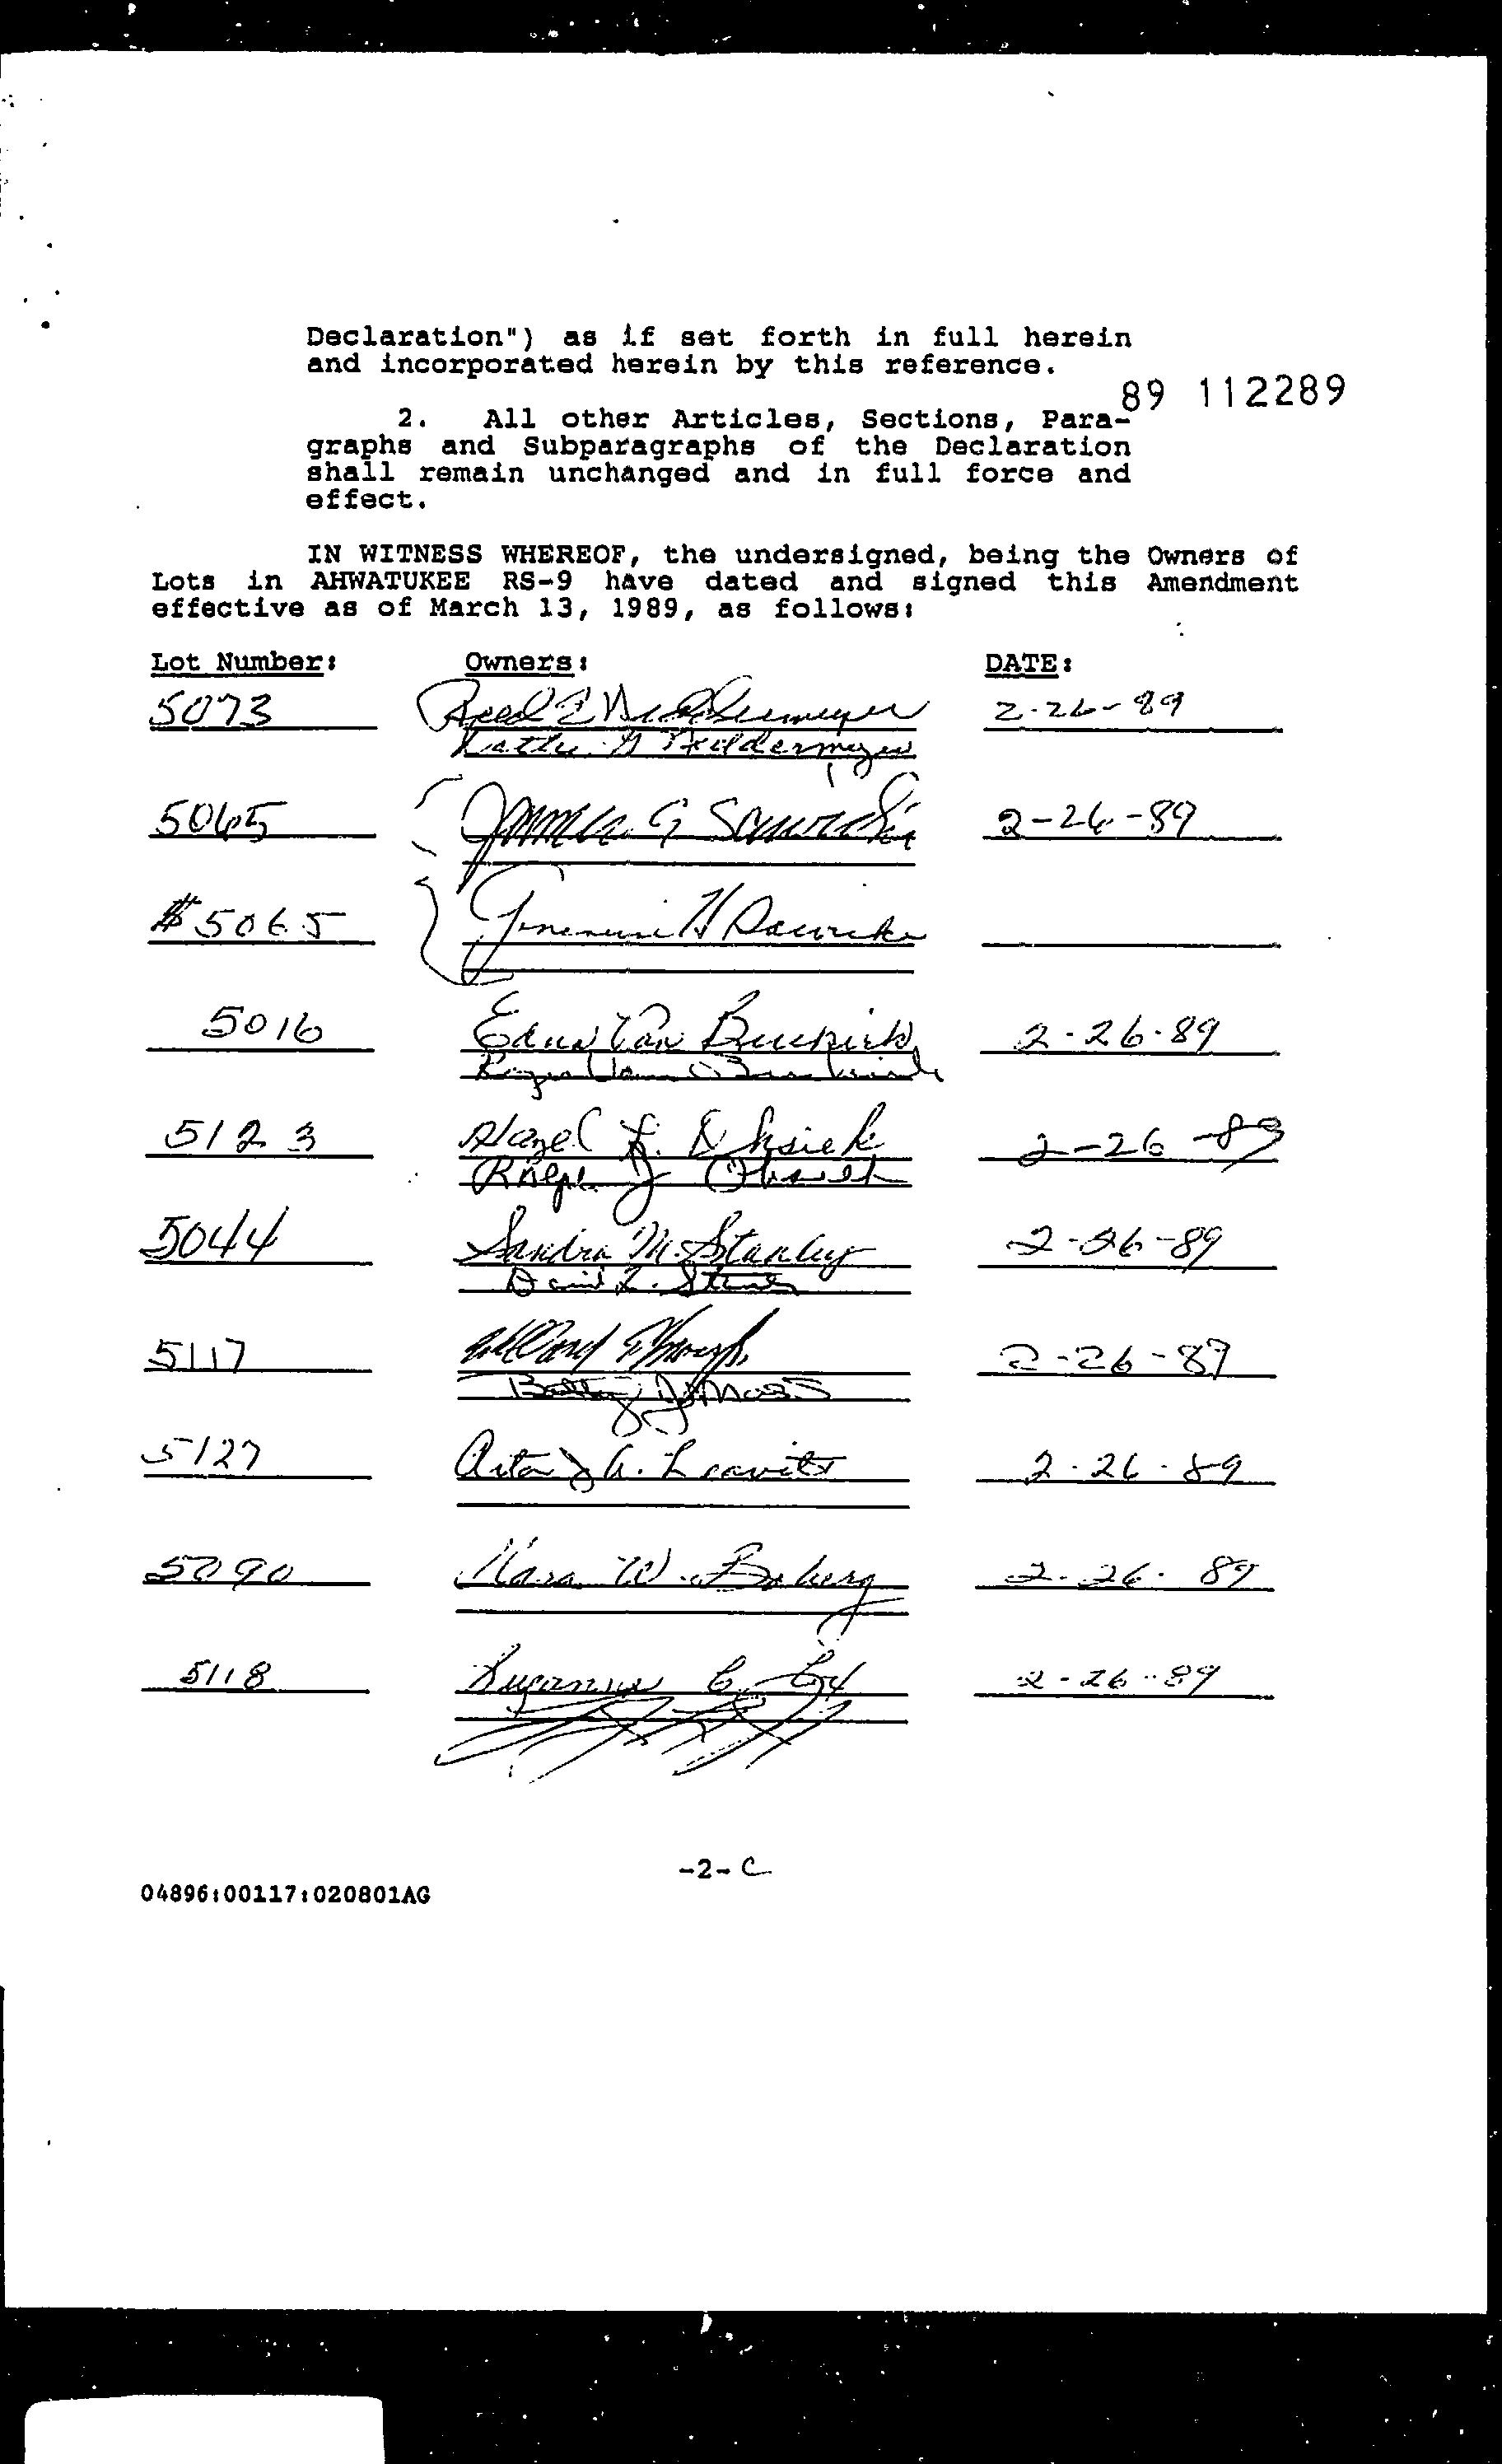 Declaration") as if set forth in full herein
and incorporated herein by this reference.
89 112289
2. All other Articles, Sections, Para-
graphs and Subparagraphs of the Declaration
shall remain unchanged and in full force and
effect.
IN WITNESS WHEREOF, the undersigned, being the Owners of
Lots in AHWATUKEE RS-9 have dated and signed this Amendment
effective as of March 13, 1989, as follows:
Lot Number: Owners: DATE:
5073 2-26-89
5065 2-26-89
#5065
5016 Edna Van Buskirk 2-26-89
Roger Van Buskirk
5123 Hazel 2-26-89
Ralph J
5044 Sandra M. Stanley 2-26-89
David L. Stanley
5117 2-26-89
Betty J Moss
5127 A. Leavitt 2-26-89
5090 W. 2-26-89
5118 Suzanne C. 2-26-89
-2- C
04896:00117:020801AG